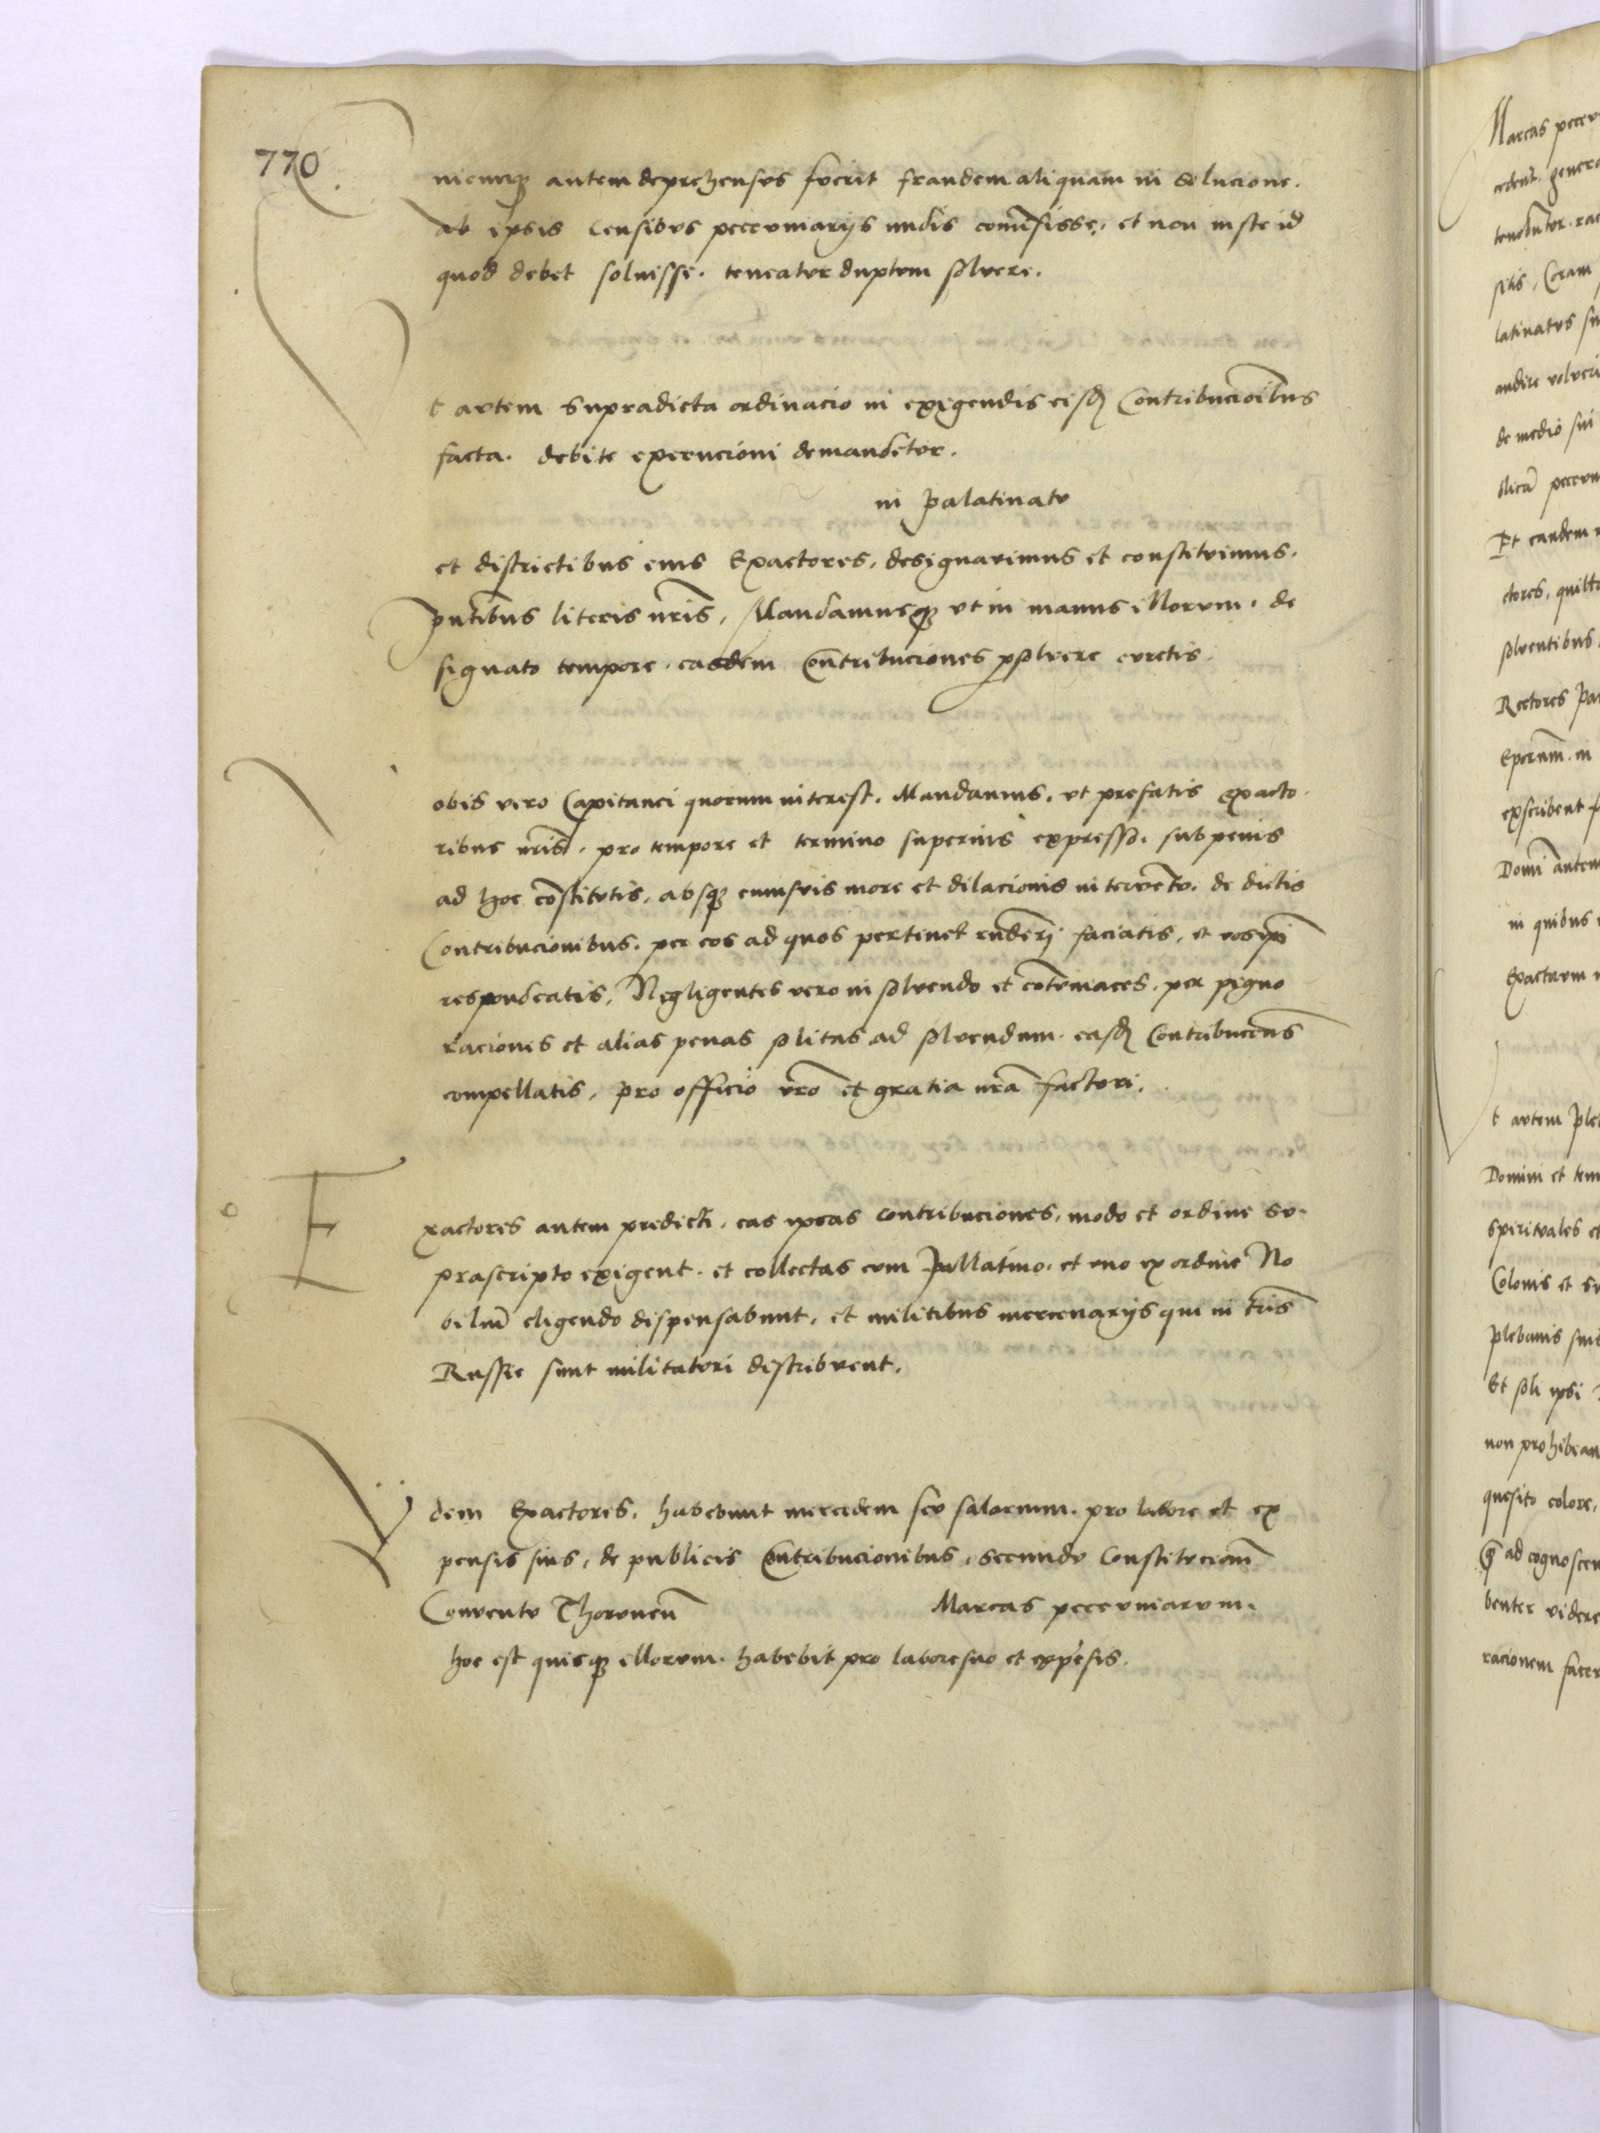 770
Quicunq autem deprehensus fuerit fraudem aliquam in solucione.
ab ipsis Censibus pecuniarijs nudis comisisse, et non iuste id
quod debet soluisse. teneatur duplum soluere.
Vt autem supradicta ordinacio in exigendis eisd Contribucioibus
facta. debite execucioni demandetur.
in Palatinatu
et districtibus eius Exactores, designauimus et constituimus.
pntibus literis nris, Mandamusq vt in manus illorum. de
signato tempore. easdem Contribuciones psoluere curetis.
Vobis vero Capitanei quorum interest. Mandamus, vt prefatis exacto
ribus nris, pro tempore et termino superius expresso. sub penis
ad hoc constitutis, absq cuiusuis more et dilacionis interuentu. de dictis
Contribucionibus. per eos ad quos pertinet rnderi faciatis, et vosipi
respondeatis, Negligentes vero in soluendo et cotumaces, per pigno
raciones et alias penas solitas ad soluendum. easd Contribucens
compellatis, pro officio vro et gratia nra facturi.
Exactores autem predicti, eas ipsas contribuciones, modo et ordine su
prascripto exigent. et collectas cum Pallatino. et uno ex ordine No
bilium eligendo dispensabunt, et militibus mercenarijs qui in tris
Russie sunt militaturi distribuent.
Ydem Exactores, habebunt mercedem seu salarium. pro labore et ex
pensis suis, de publicis Contribucionibus, secundo Constitucionem
Conuentu Thorunen Marcas pecuniarum.
hoc est quisq illorum. habebit pro labore suo et expesis.
Marcas
tenebuntur.
sitis, Coram
latinatus
audire
de medio sui
Et eandem
ctores,
soluentibus
Rectores
exscribent
Domi autem
in quibus
Exactarum
t autem
Domini et
spirituales et
Colonis et
plebanis
Et soli ipsi
non
quesito colore,
ad
racionem